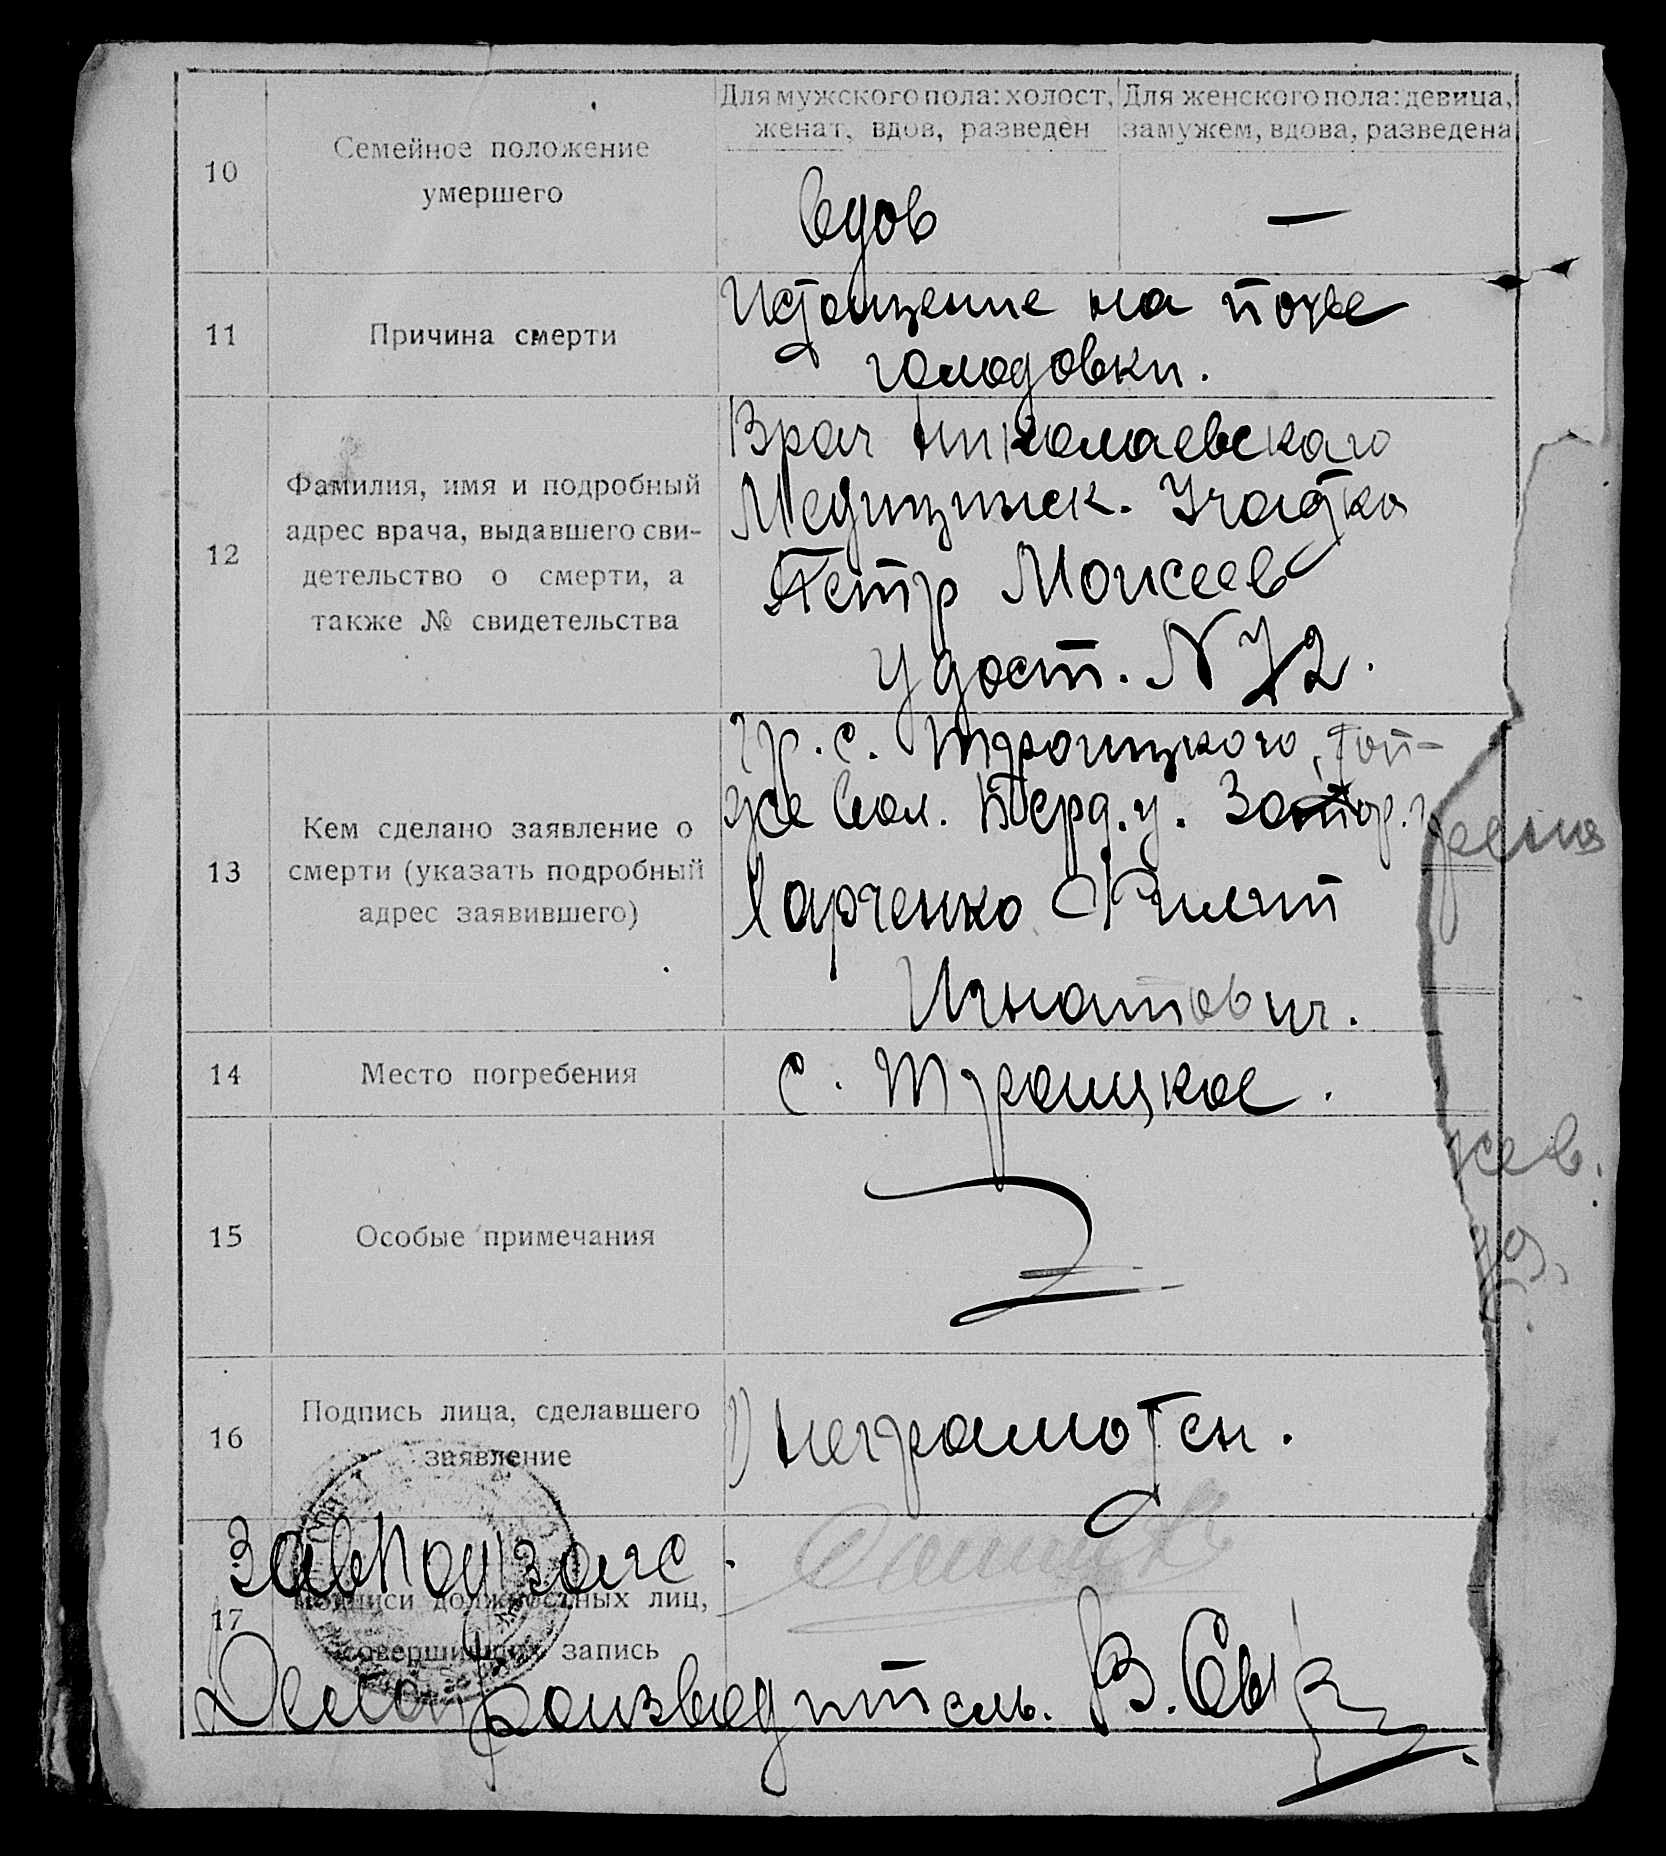 10
Семейное положение
умершего
Для мужского пола: холост,
женат, вдов, разведен
Для женского пола: девица,
замужем, вдова, разведена
вдов
—
11
Причина смерти
Истощение на почве
голодовки.
12
Фамилия, имя и подробный
адрес врача, выдавшего сви-
детельство о смерти, а
также № свидетельства
Врач Николаевского
Медицинск. Участка
Петр Моисеев
Удост. N 72.
13
Кем сделано заявление о
смерти (указать подробный
адрес заявившего)
Гр. с. Троицкого, той-
же вол. Берд. у. Запор. г.
Харченко Филип
Игнатович.
14
Место погребения
с. Троицкое.
15
Особые примечания
16
Подпись лица, сделавшего
заявление
неграмотен.
17
Подписи должностных лиц,
совершивших запись
ЗавПодзагс
Делопроизводитель. В.